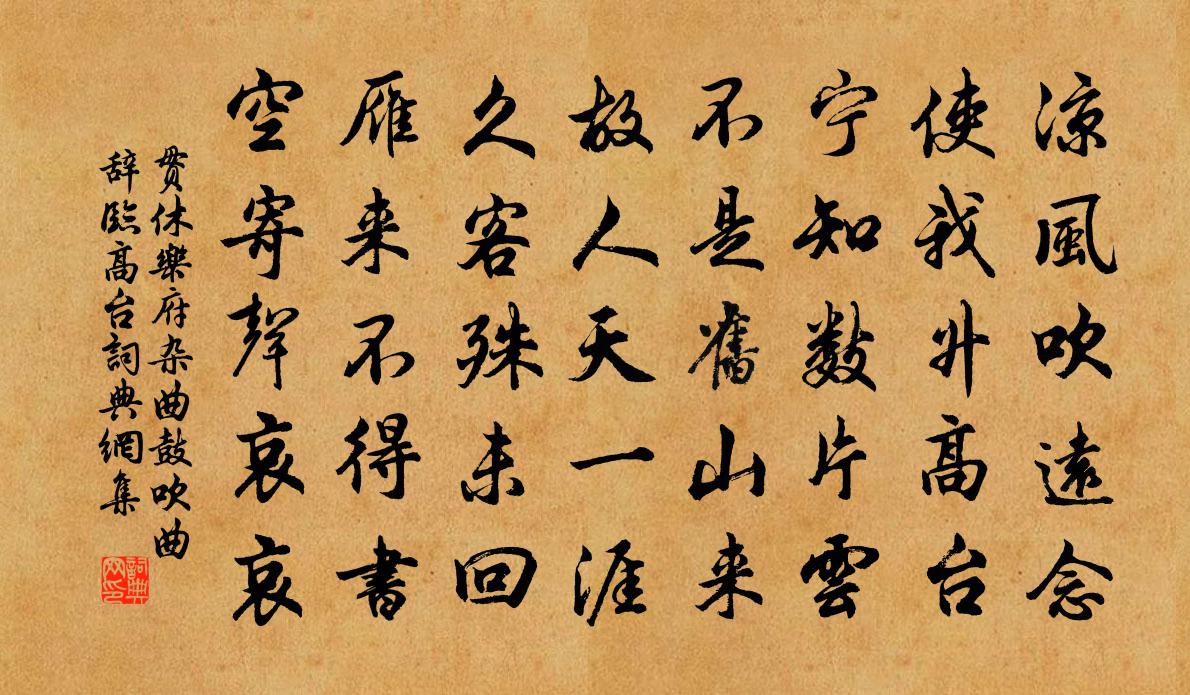 涼風吹遠念
使我升高台
宁知数片雲
不是舊山来
故人天一涯
久客殊未回
雁来不得書
空寄聲哀哀
贯休樂府杂曲鼓吹曲
辞臨高台詞典網集
詞典网印